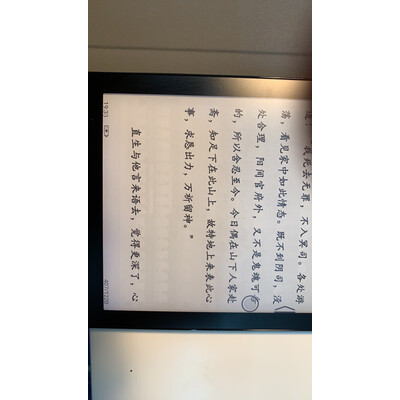 我死去无罪，不入冥司。各处游
荡，看见家中如此情态。既不到阴司，没
处合理，阳间官府外，又不是鬼魂可告
的，所以含忍至今。今日偶在山下人家赴
斋，知足下在此山上，故特地上来表此心
事，求恳出力，万祈留神。”
直生与他言来语去，觉得更深了，心
19:31
407/1720